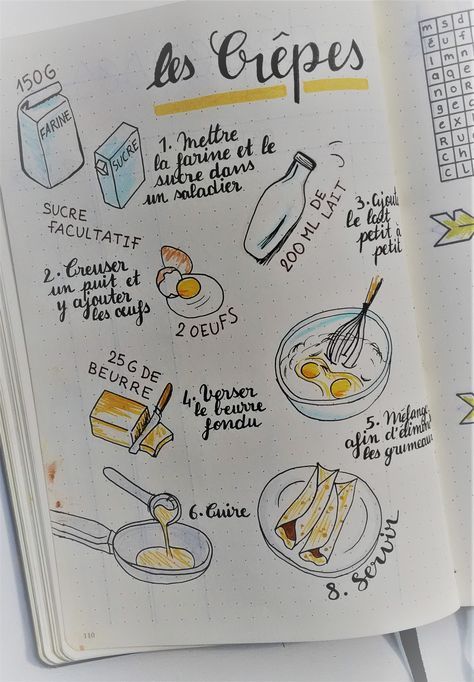 les Crêpes
150G
FARINE
SUCRE
1. Mettre
la farine et le
sucre dans
un saladier
SUCRE
FACULTATIF
200 ML DE
LAIT
3. Ajout
le lait
petit à
petit
2. Creuser
un puit et
y ajouter
les œufs
2 OEUFS
25 G DE
BEURRE
4. Verser
le beurre
fondu
5. Mélange
afin d'élimin
les grumeau
6. Cuire
8. Servir
110